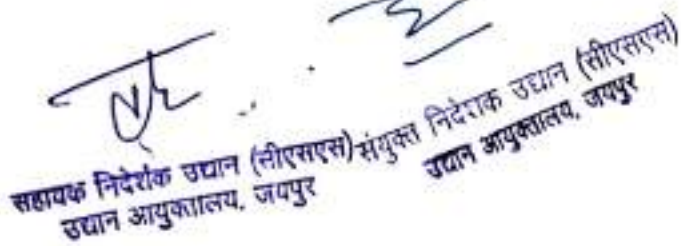 सहायक निदेशक उद्यान (सीएसएस)
उद्यान आयुक्तालय, जयपुर
संयुक्त निदेशक उद्यान (सीएसएस)
उद्यान आयुक्तालय, जयपुर